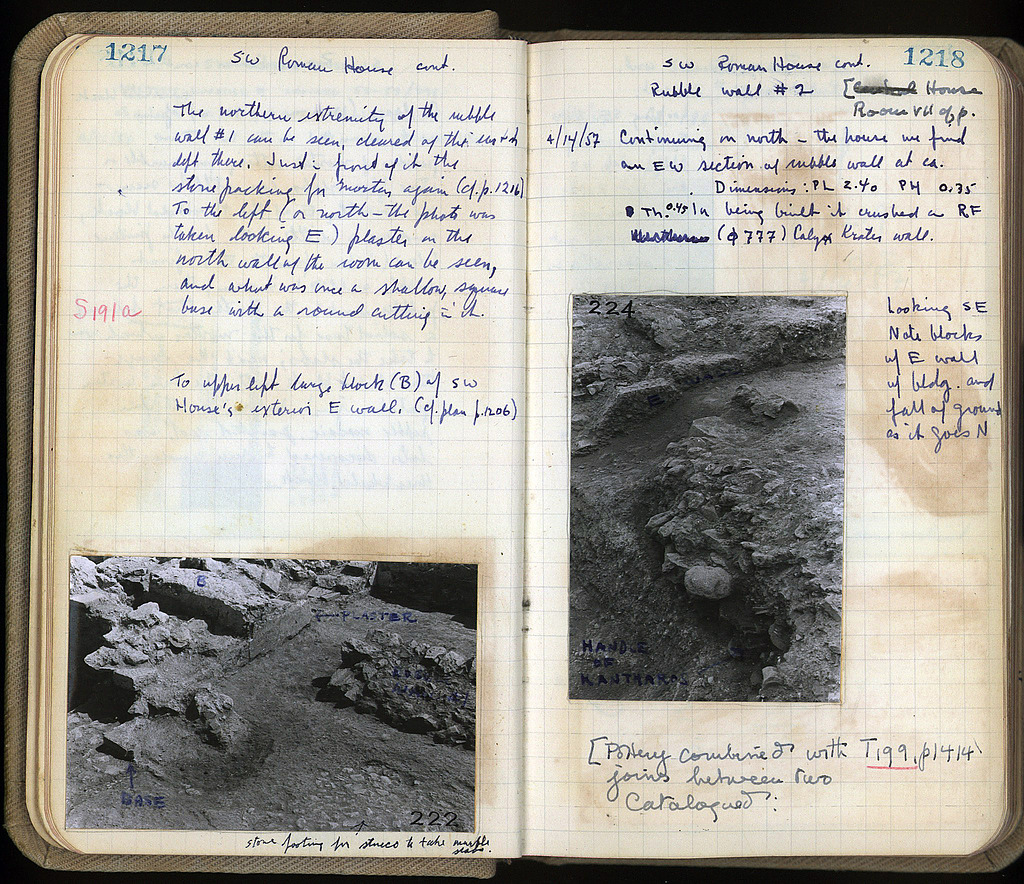 1217
SW Roman House cont.
The northern extremity of the rubble
wall #1 can be seen, cleared of this
left there. Just in front of it the
stone packing for mortar again (cf. p. 1216)
To the left (or north - the photo was
taken looking E) plaster on the
north wall of the room can be seen,
and what was once a shallow, square
base with a round cutting in it.
S191a
To upper left large block (B) of SW
House's exterior E wall. (cf. plan p. 1206)
B
PLASTER
BASE
222
stone footing for stucco to take marble
1218
SW Roman House cont.
Rubble wall #2 [Central House
Room VII of p.
4/14/57 Continuing on north - the house we find
an EW section of rubble wall at ca.
Dimensions: PL 2.40 PH 0.35
Th. 0.45 In being built it crushed a RF
(φ 777) Calyx Krater wall.
224
E
HANDLE
OF
KANTHAROS
Looking SE
Note blocks
of E wall
of bldg. and
fall of ground
as it goes N
[Pottery combined with T199, p1414
joins between two
Catalogued: